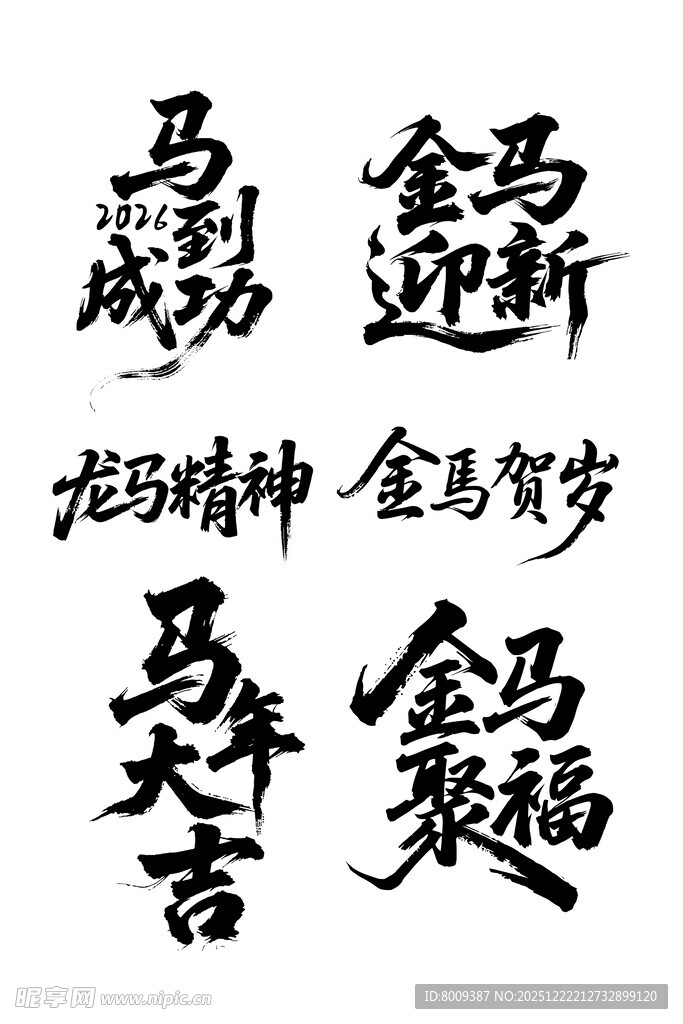 马到成功
2026
金马迎新
龙马精神
金馬贺岁
马年大吉
金马聚福
昵享网 www.nipic.cn
ID:8009387 NO:20251222212732899120